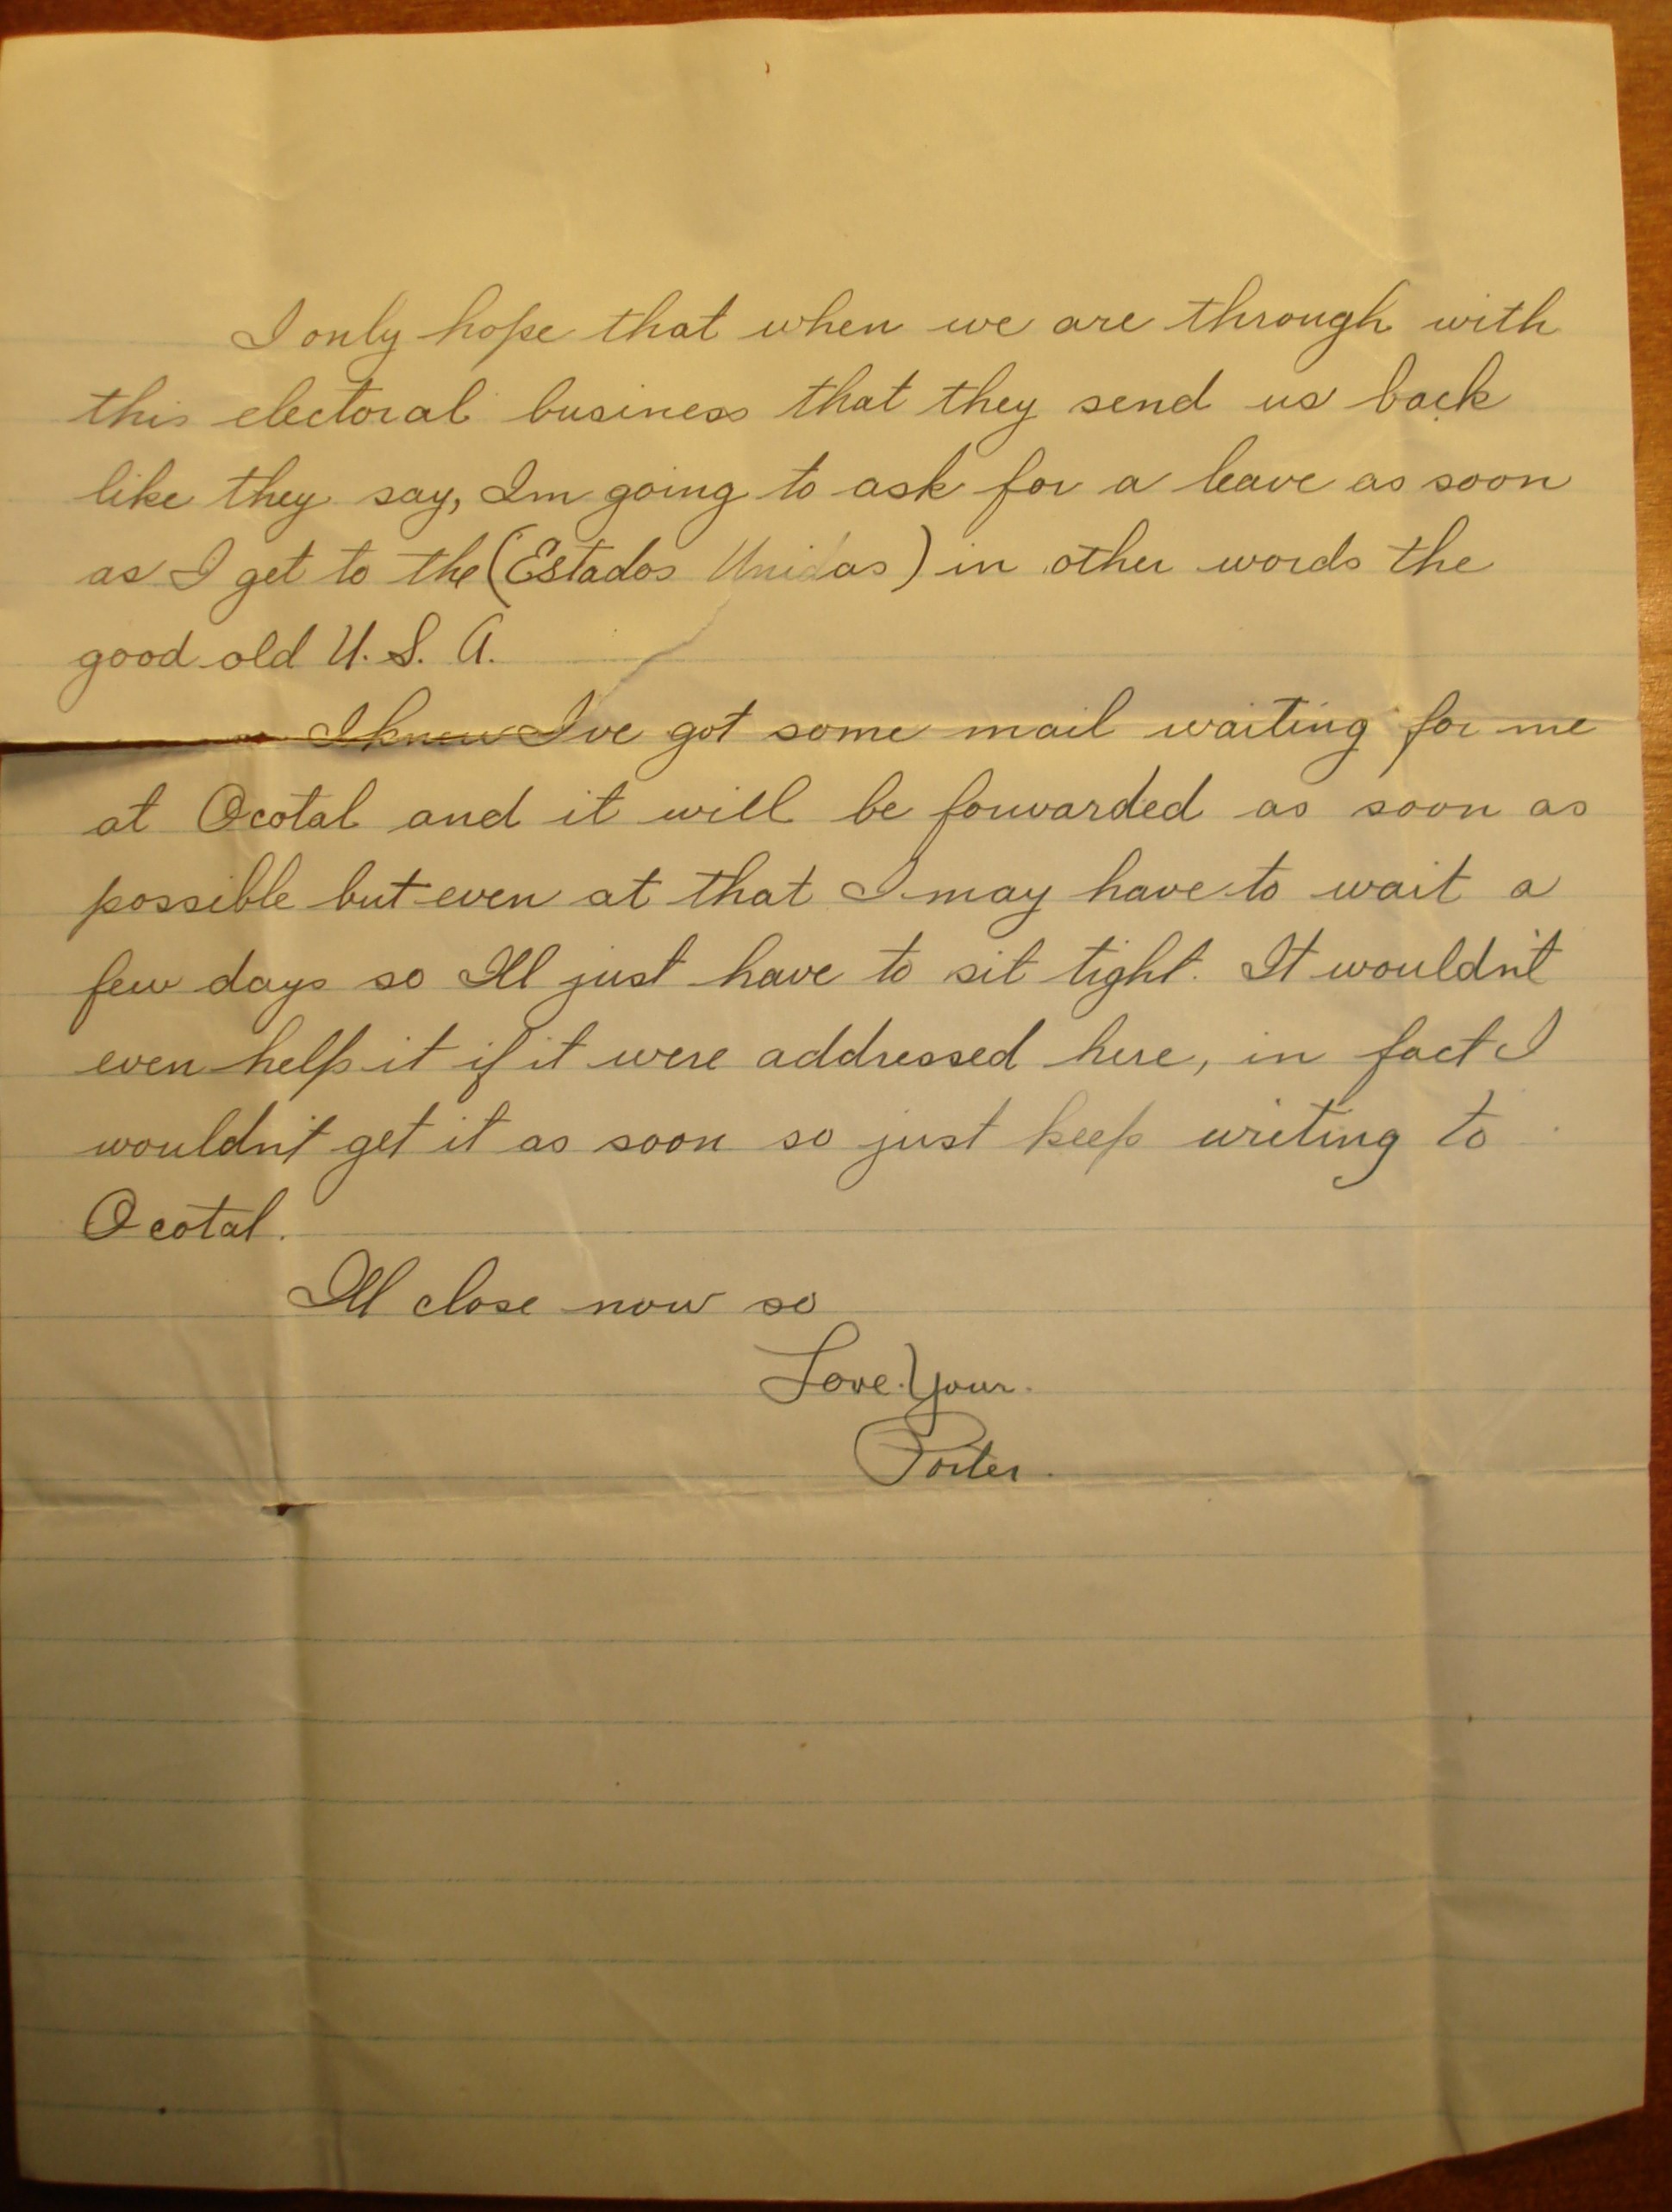 I only hope that when we are through with
this electoral business that they send us back
like they say, Im going to ask for a leave as soon
as I get to the (Estados Unidas) in other words the
good old U. S. A.
I know I've got some mail waiting for me
at Ocotal and it will be forwarded as soon as
possible but even at that I may have to wait a
few days so Ill just have to sit tight. It wouldn't
even help it if it were addressed here, in fact I
wouldn't get it as soon so just keep writing to
Ocotal.
Ill close now so
Love. Your.
Porter.